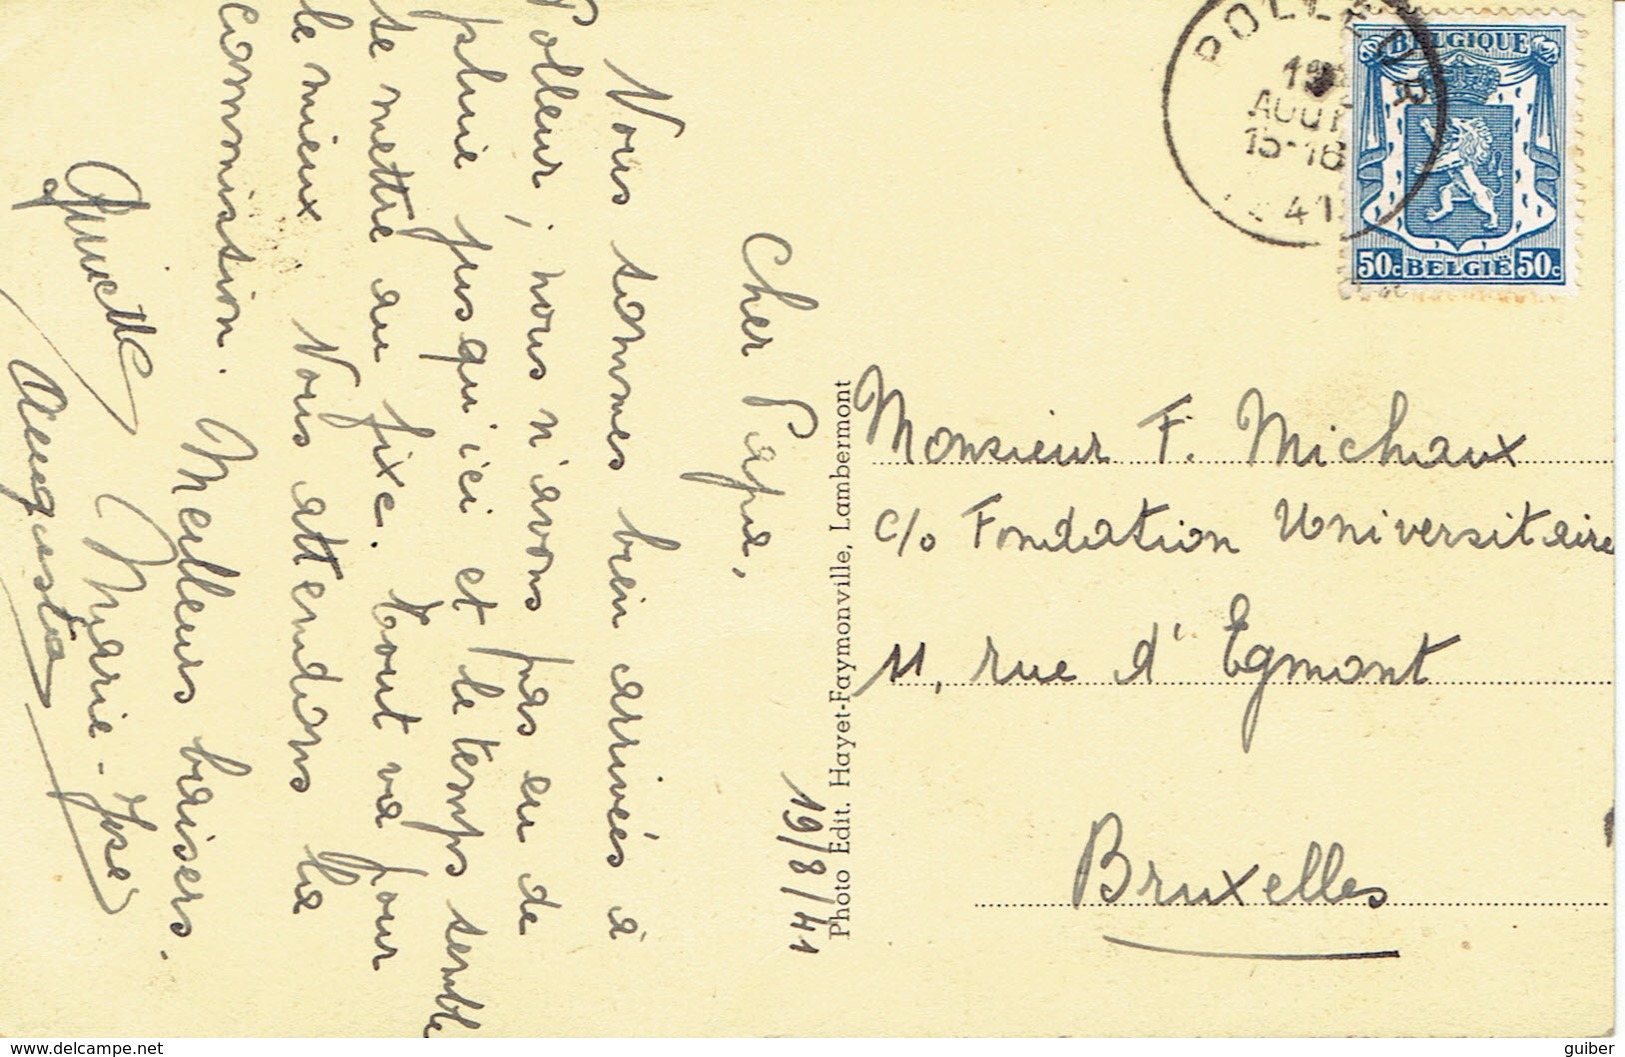 19/8/41
Cher Papa,
Nous sommes bien arrivés à
Polleur, nous n'avons pas eu de
pluie jusqu'ici et le temps semble
se mettre au fixe. Tout va pour
le mieux. Nous attendons la
commission. Meilleurs baisers.
Marie-José
Augusta
Photo Edit. Hayet-Faymonville, Lambermont
POLLEUR
19
AOUT
15-16
41
BELGIQUE
50c BELGIË 50c
Monsieur F. Michaux
c/o Fondation Universitaire
11, rue d'Egmont
Bruxelles
www.delcampe.net
guiber